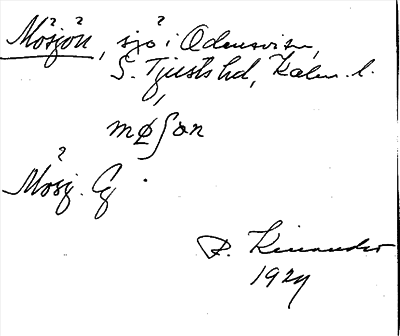 Mösjön, sjö i Odensvi sn,
S. Tjusts hd, Kalm. l.
møʃøn
Mösj. Eg
R. Kinander
1927